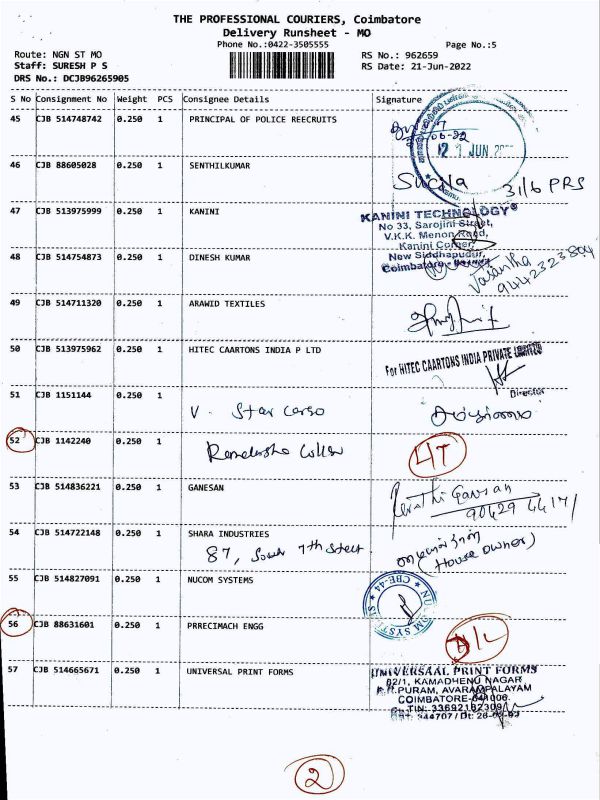 THE PROFESSIONAL COURIERS, Coimbatore
Delivery Runsheet - MO
Phone No.:0422-3505555
Page No.:5
Route: NGN ST MO
Staff: SURESH P S
DRS No.: DCJB96265905
RS No.: 962659
RS Date: 21-Jun-2022
S No Consignment No Weight PCS Consignee Details Signature
45 CJB 514748742 0.250 1 PRINCIPAL OF POLICE REECRUITS
JUN
46 CJB 88605028 0.250 1 SENTHILKUMAR
Sucila 31/6 PRS
47 CJB 513975999 0.250 1 KANINI
KANINI TECHNOLOGY
No 33, Sarojini Street,
V.K.K. Menon Road,
Kanini Corner,
New Siddhapudur,
Coimbatore
48 CJB 514754873 0.250 1 DINESH KUMAR
Vasantha
9442323804
49 CJB 514711320 0.250 1 ARAWID TEXTILES
50 CJB 513975962 0.250 1 HITEC CAARTONS INDIA P LTD
For HITEC CAARTONS INDIA PRIVATE LIMITED
Director
51 CJB 1151144 0.250 1
V. Star Cargo
52 CJB 1142240 0.250 1
53 CJB 514836221 0.250 1 GANESAN
90429 44171
54 CJB 514722148 0.250 1 SHARA INDUSTRIES
87, South 7th Street.
(House owner)
55 CJB 514827091 0.250 1 NUCOM SYSTEMS
NUCOM SYSTEMS CBE-44
56 CJB 88631601 0.250 1 PRRECIMACH ENGG
D/L
57 CJB 514665671 0.250 1 UNIVERSAL PRINT FORMS
UNIVERSAAL PRINT FORMS
62/1, KAMADHENU NAGAR
P.N.PURAM, AVARAMPALAYAM
COIMBATORE-641006.
TIN: 33692182309
2